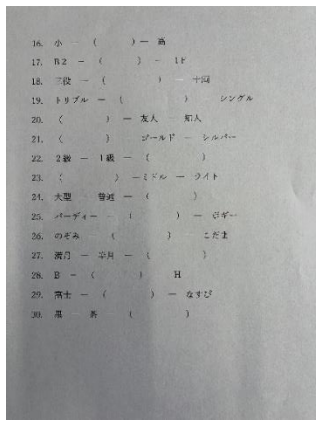 16. 小 — (　　　) — 高
17. B2 — (　　　) — 1F
18. 三役 — (　　　) — 十両
19. トリプル — (　　　) — シングル
20. (　　　) — 友人 — 知人
21. (　　　) — ゴールド — シルバー
22. 2級 — 1級 — (　　　)
23. (　　　) — ミドル — ライト
24. 大型 — 普通 — (　　　)
25. バーディー — (　　　) — ボギー
36. のぞみ — (　　　) — こだま
27. 満月 — 半月 — (　　　)
28. B — (　　　) — H
29. 富士 — (　　　) — なすび
30. 黒 — 茶 — (　　　)